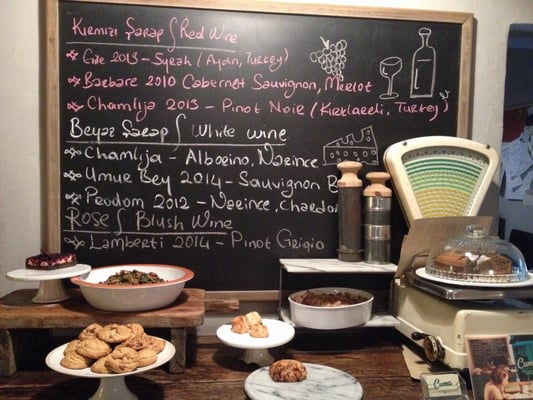 Kırmızı Şarap ∫ Red Wine
Gile 2013 - Syrah (Aydın, Turkey)
Barbare 2010 Cabernet Sauvignon, Merlot
Chamlija 2013 - Pinot Noir (Kırklareli, Turkey)
Beyaz Şarap ∫ White wine
Chamlija - Albarino, Narince
Umur Bey 2014 - Sauvignon B
Prodom 2012 - Narince, Chardon
Rose ∫ Blush Wine
Lamberti 2014 - Pinot Grigio
Cuma